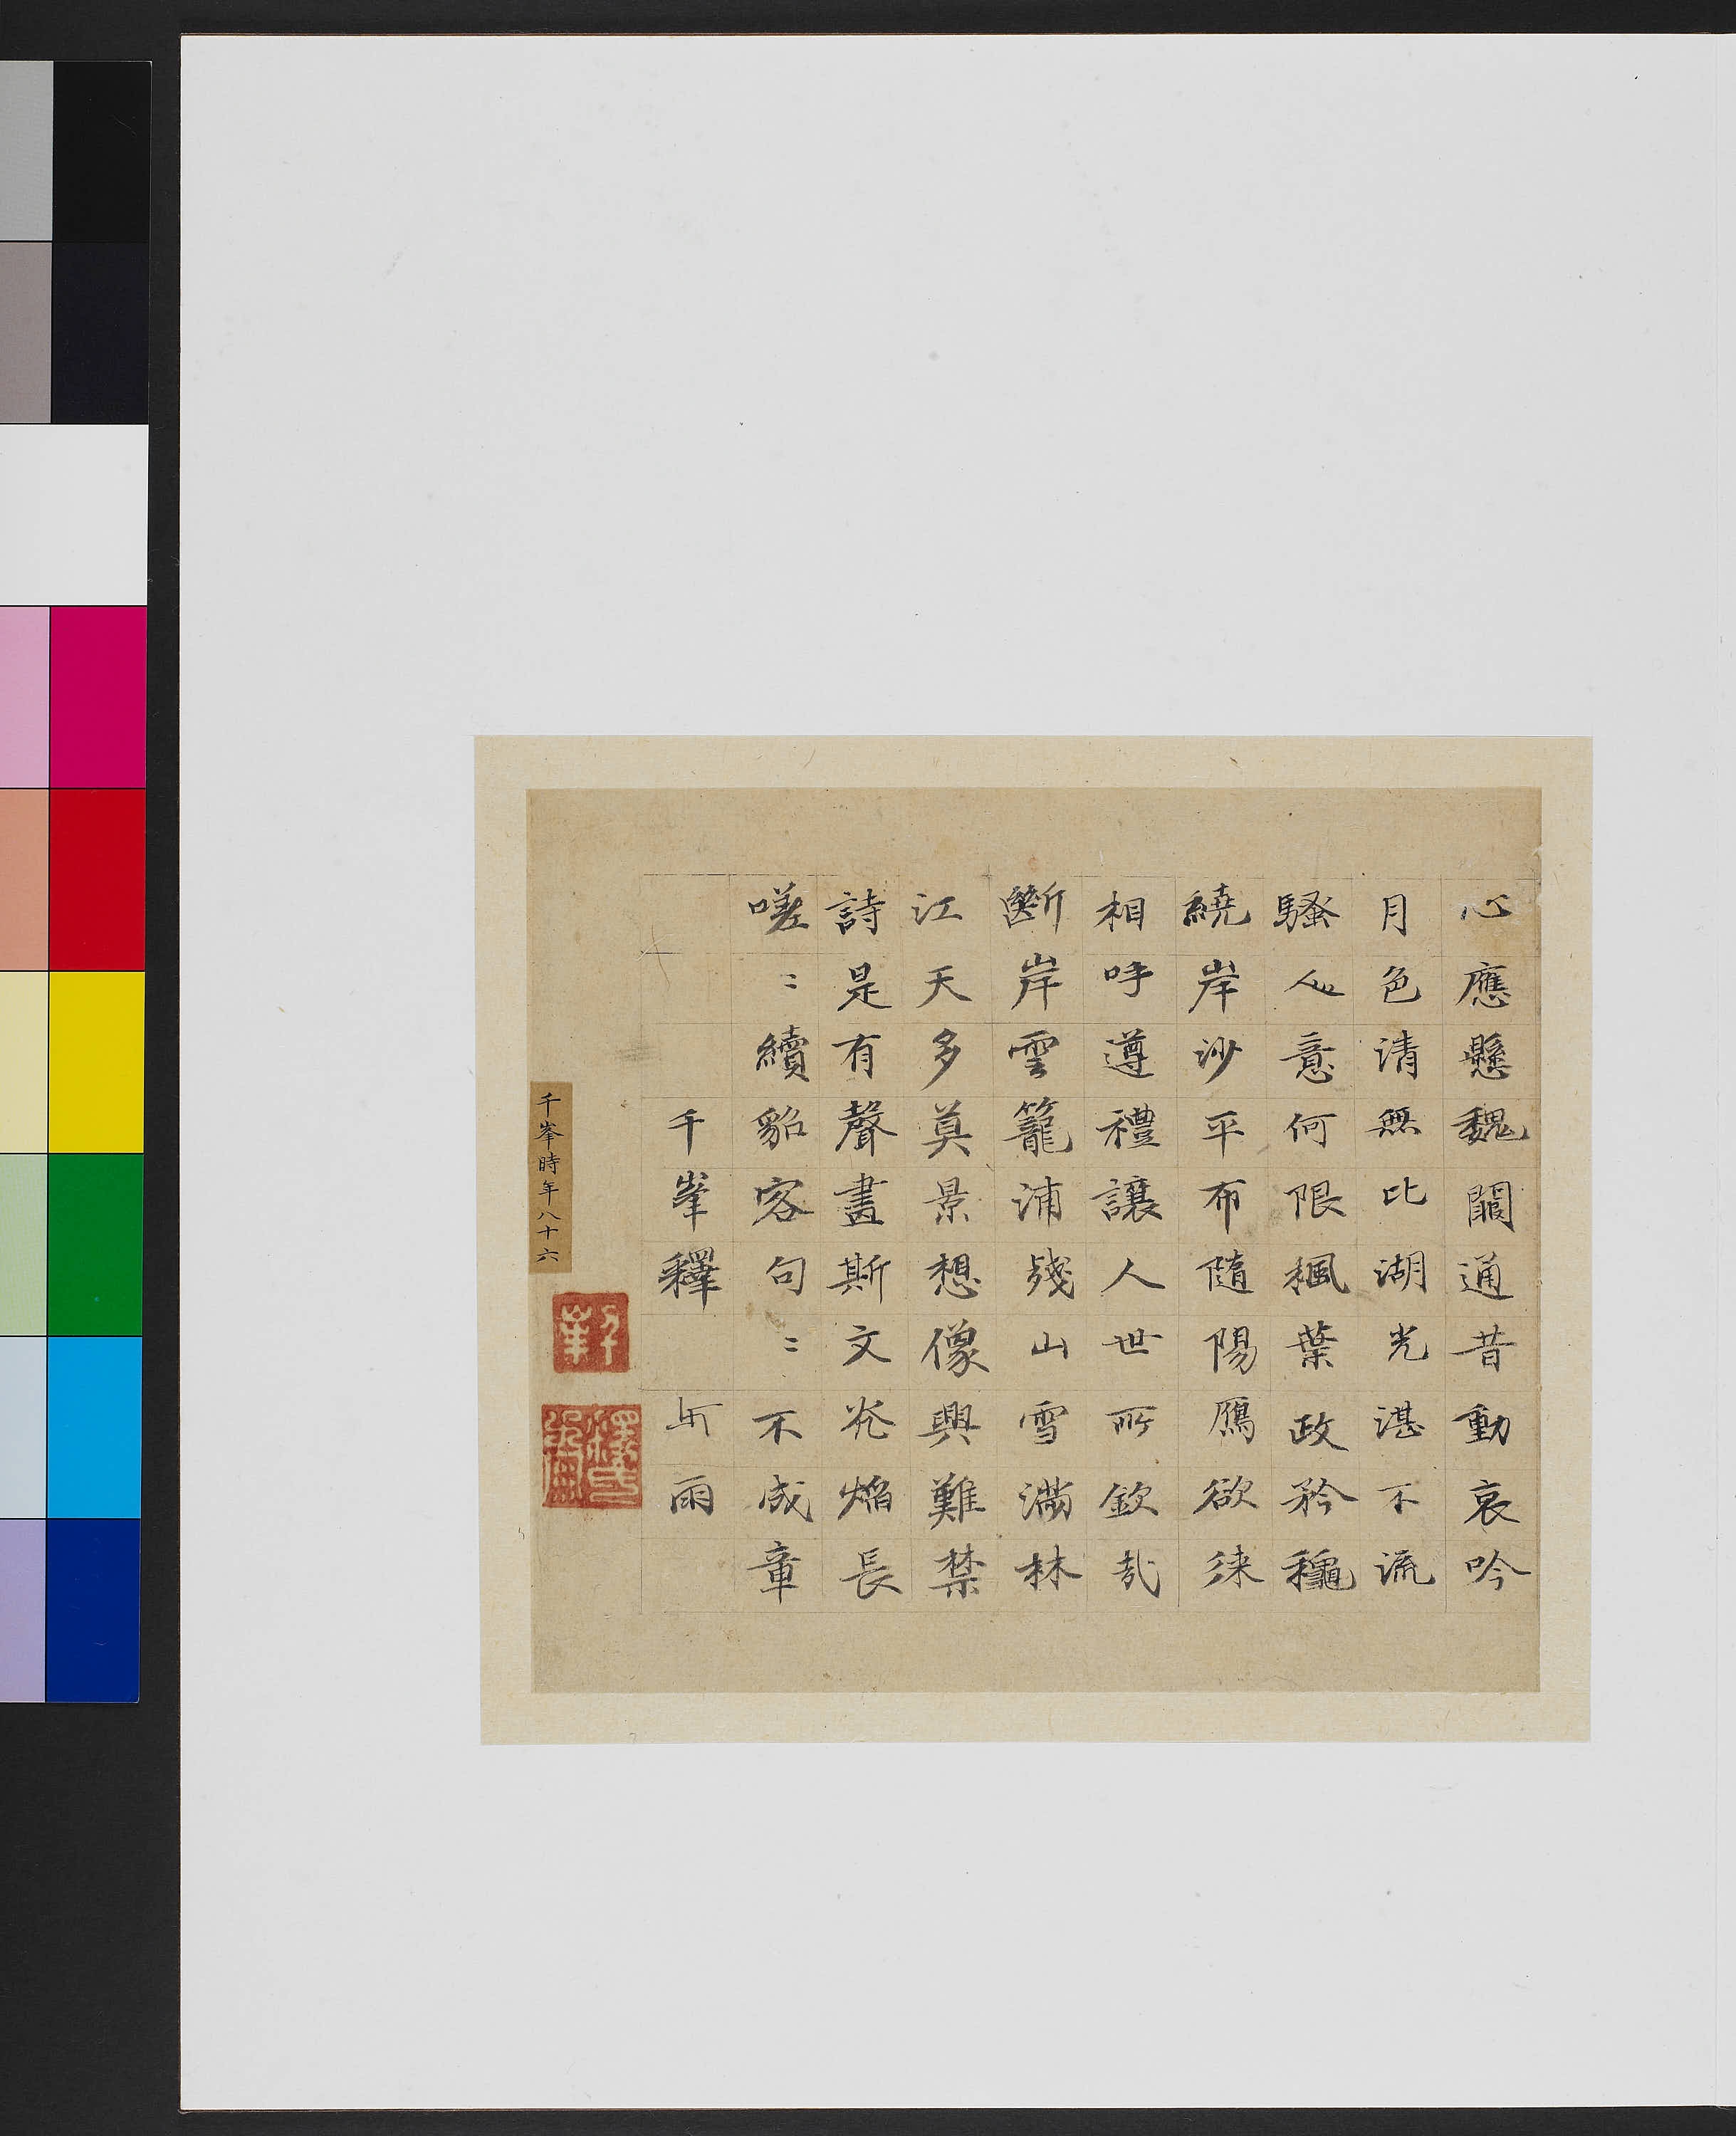 心應懸魏闕通昔動哀吟
月色清無比湖光湛不流
騷人意何限楓葉政矜穐
繞岸沙平布隨陽鴈欲徠
相呼遵禮讓人世所欽哉
斷岸雲籠浦殘山雪滿林
江天多莫景想像興難禁
詩是有聲畫斯文光焰長
嗟〻續貂客句〻不成章
千峯釋 雨
千峯時年八十六